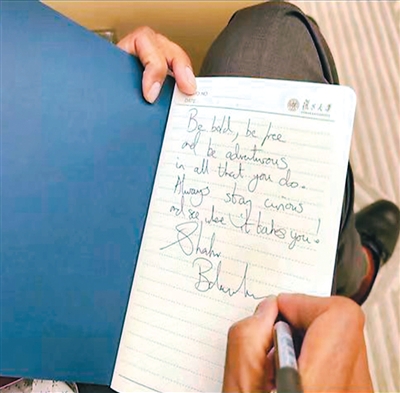 DATE
復旦大學
Be bold, be free
and be adventurous
in all that you do.
Always stay curious
and see where it takes you!
Shahar